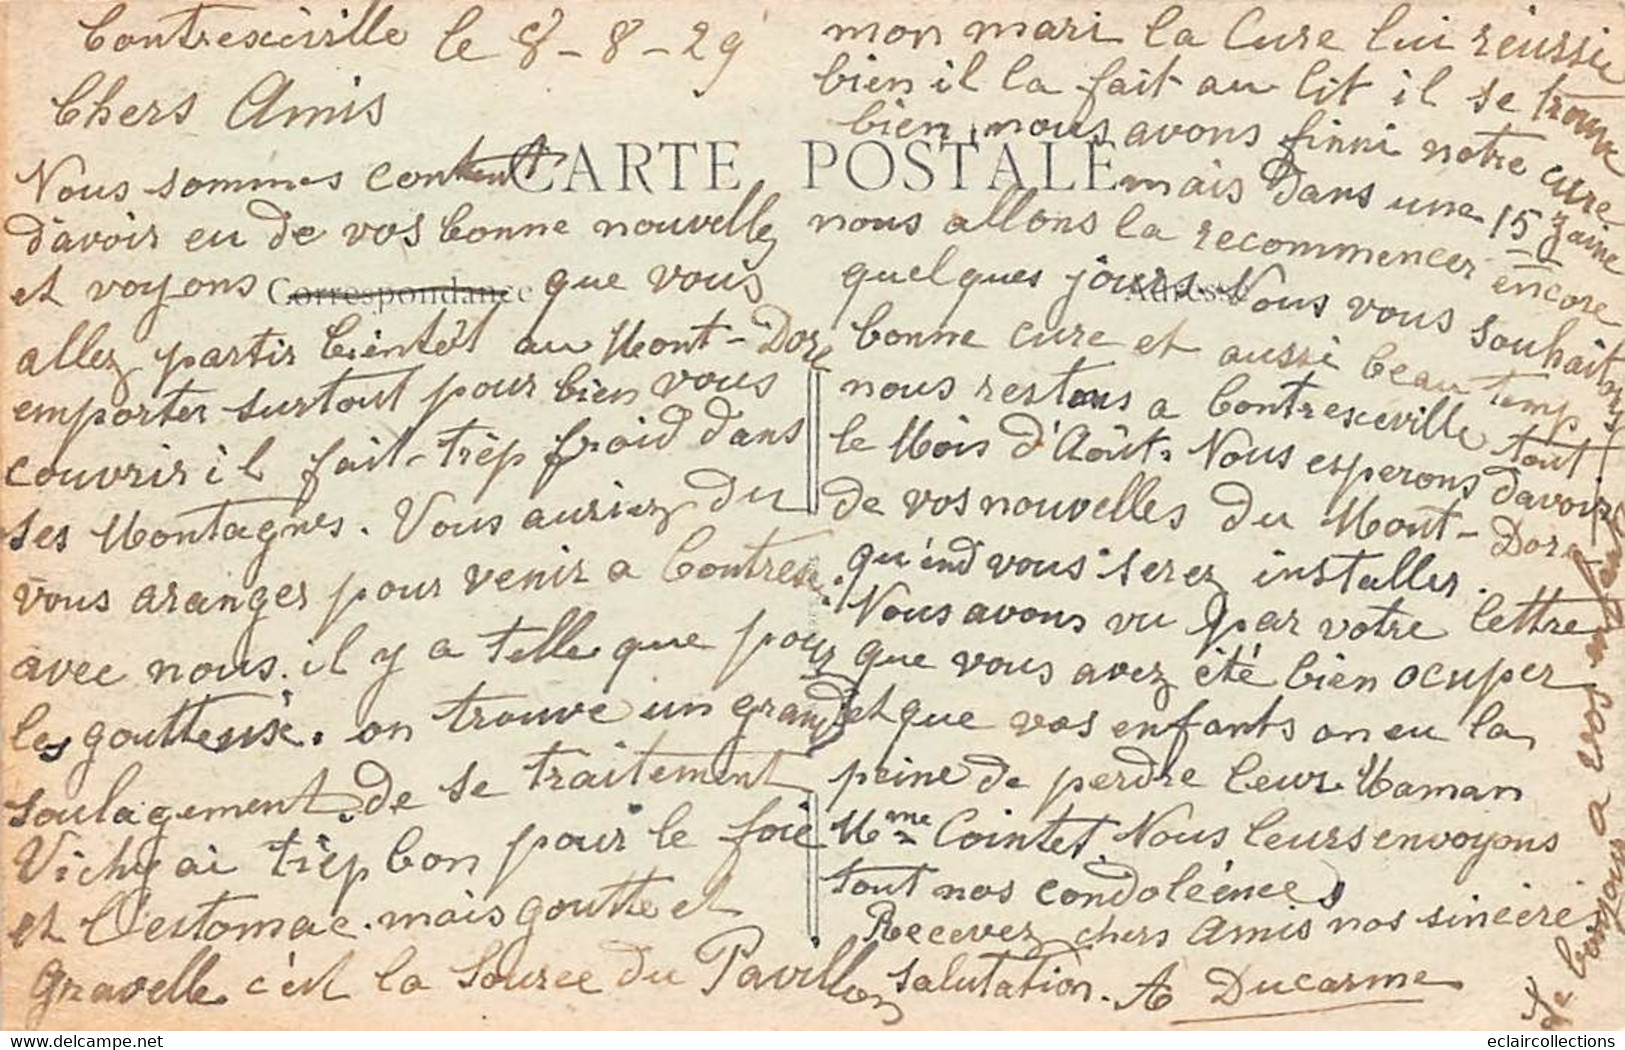 Contrexéville le 8-8-29
Chers Amis
CARTE POSTALE
Nous sommes content
d'avoir eu de vos bonne nouvelles
Correspondance
et voyons que vous
allez partir bientôt au Mont-Dore
emporter surtout pour bien vous
couvrir il fait trèp froid dans
ses Montagnes. Vous auriez du
vous aranger pour venir a Contrexe.
avec nous. il y a telle que pour
les goutteuse. on trouve un grand
soulagement de se traitement
Vichy ai trèp bon pour le foie
et l'estomac. mais goutte et
gravelle c'est la Source du Pavillon
mon mari la Cure lui réussie
bien il la fait au lit il se trouve
bien, nous avons finni notre cure
mais dans une 15zaine
nous allons la recommencer encore
Adresse
quelques jours. Nous vous souhaitons
bonne cure et aussi beau temp
nous restons a Contrexeville tout
le Mois d'Août. Nous esperons d'avoir
de vos nouvelles du Mont-Dore
qu'end vous serez installer.
Nous avons vu par votre lettre
que vous avez été bien ocuper
et que vos enfants on eu la
peine de perdre leur Maman
Mme Cointet Nous leurs envoyons
tout nos condoléences
Recevez chers Amis nos sincère
salutation. A Ducarme
bonjour a vos enfants
eclaircollections